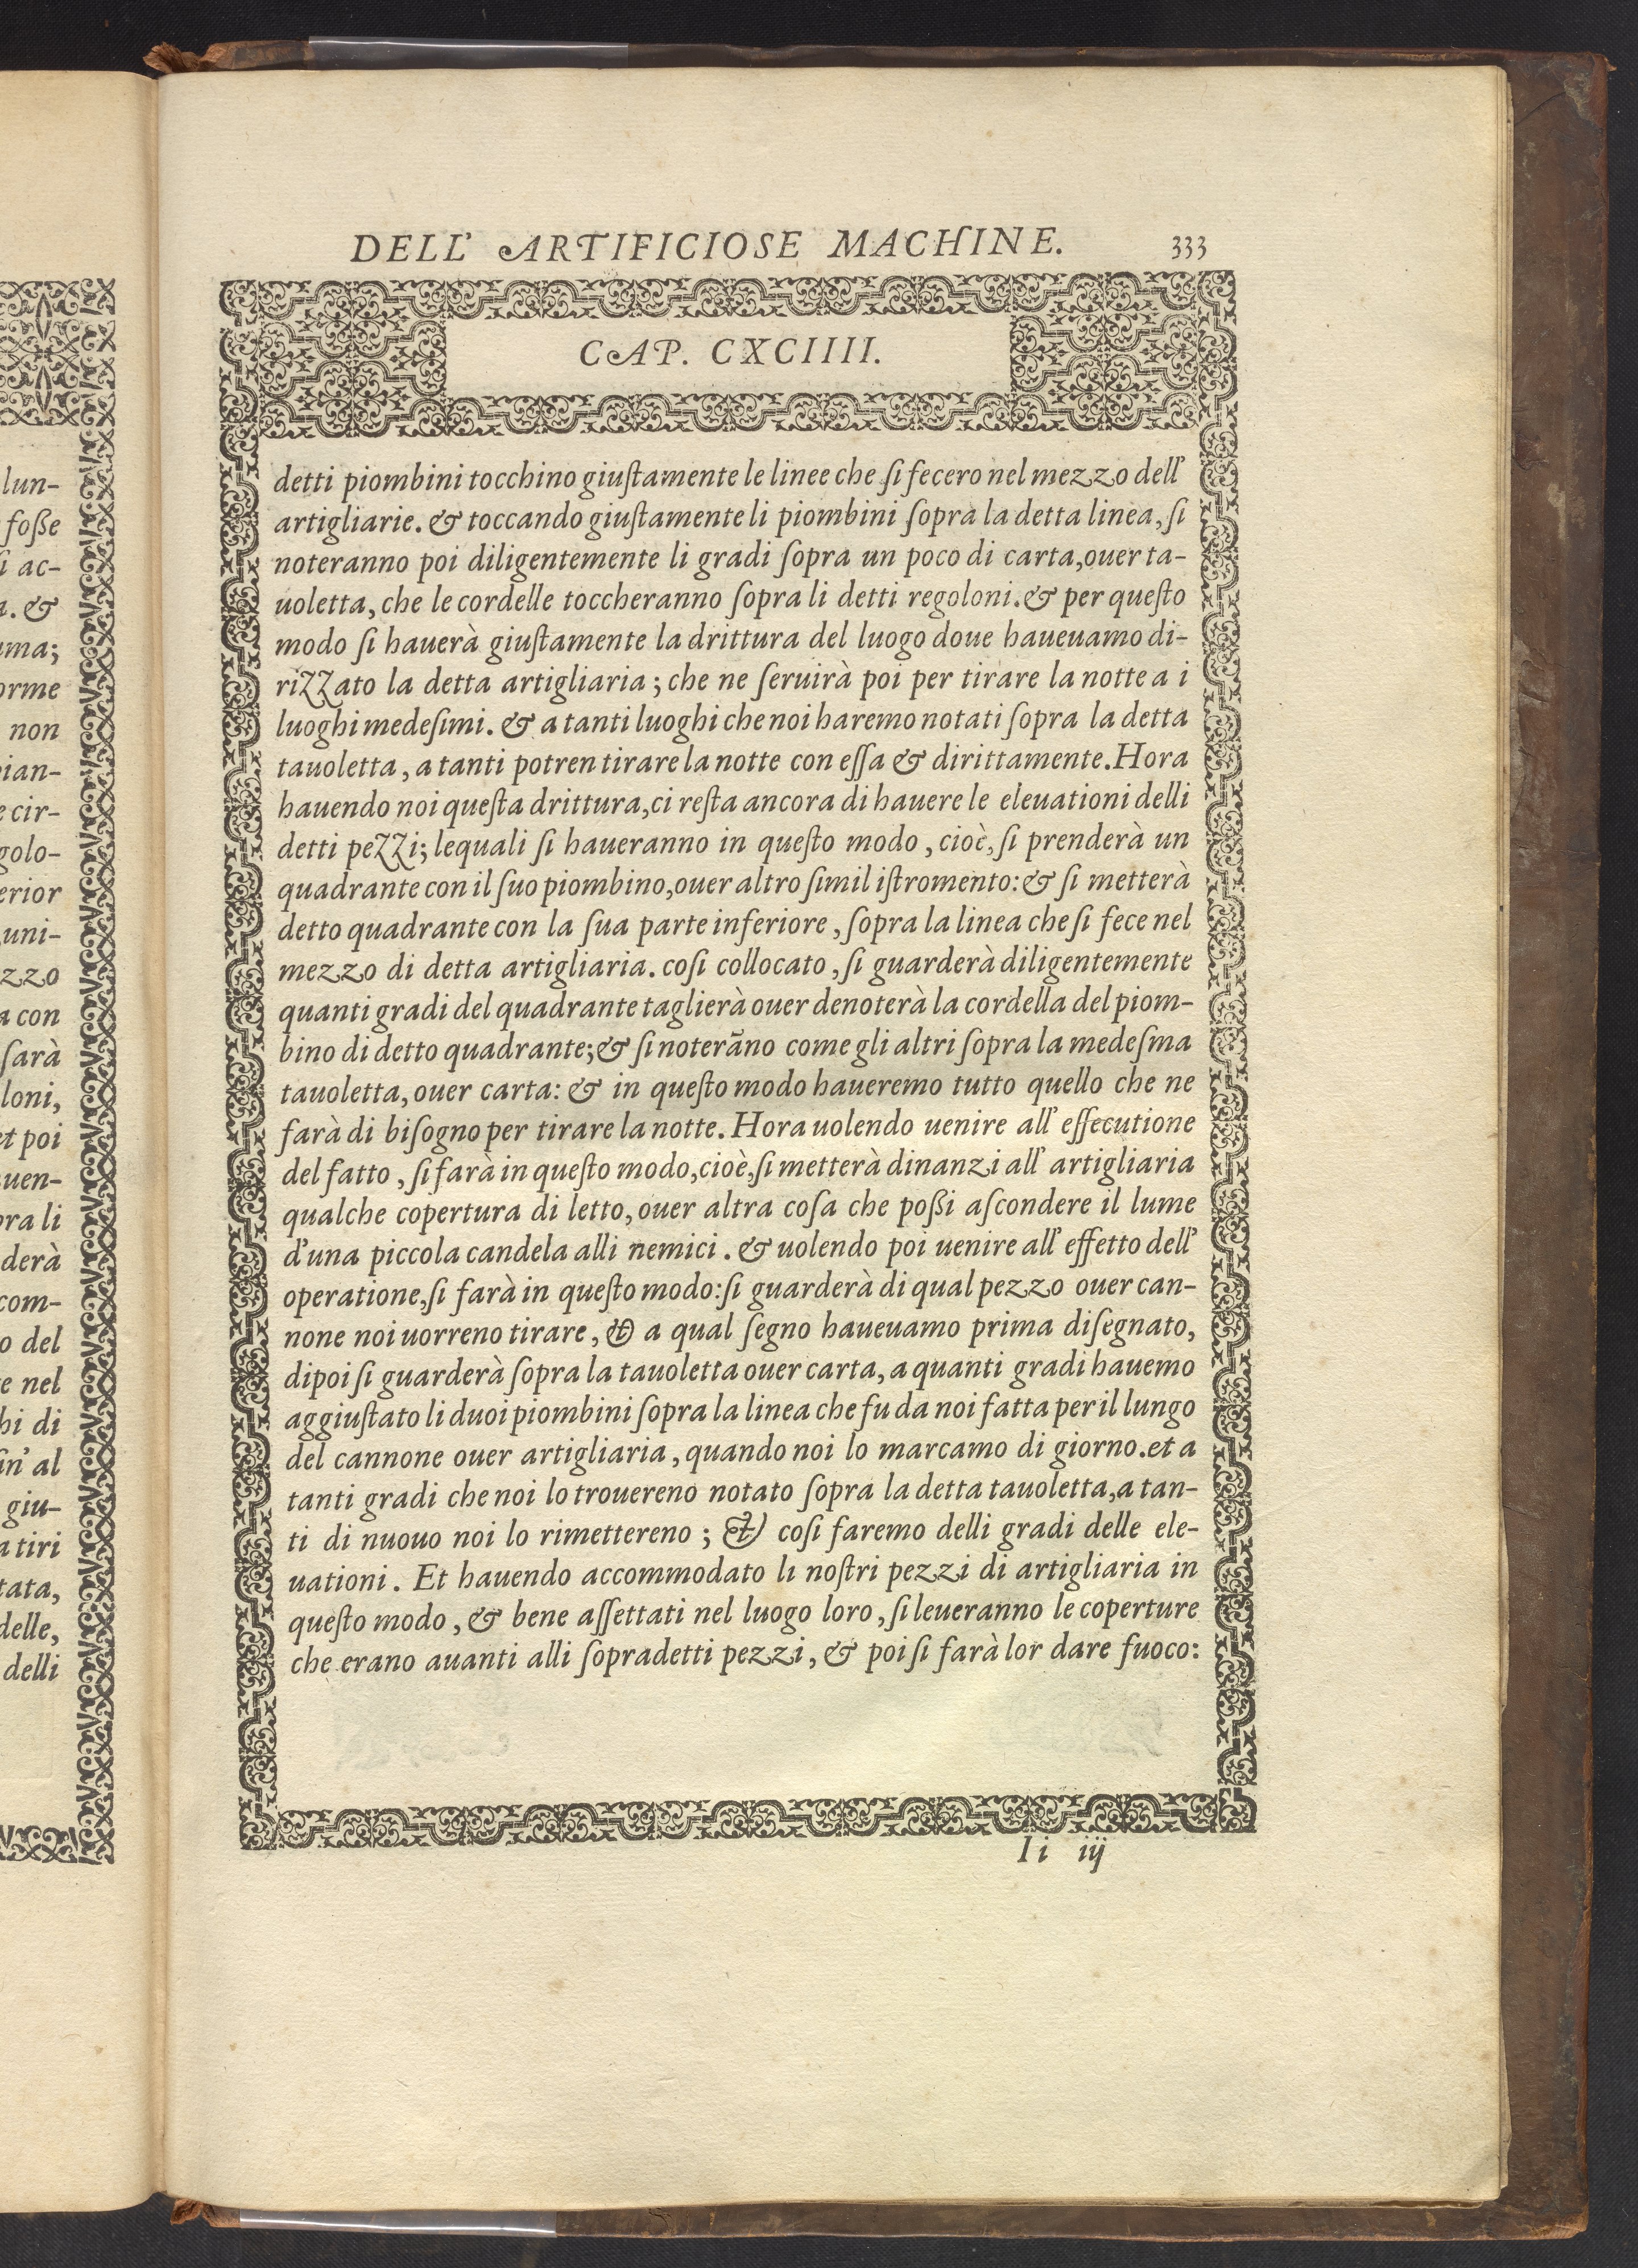 DELL' ARTIFICIOSE MACHINE. 333
CAP. CXCIIII.
detti piombini tocchino giuſtamente le linee che ſi fecero nel mezzo dell'
artigliarie. & toccando giuſtamente li piombini ſopra la detta linea, ſi
noteranno poi diligentemente li gradi ſopra un poco di carta, ouer ta-
uoletta, che le cordelle toccheranno ſopra li detti regoloni. & per queſto
modo ſi hauerà giuſtamente la drittura del luogo doue haueuamo di-
rizzato la detta artigliaria; che ne ſeruirà poi per tirare la notte a i
luoghi medeſimi. & a tanti luoghi che noi haremo notati ſopra la detta
tauoletta, a tanti potren tirare la notte con eſſa & dirittamente. Hora
hauendo noi queſta drittura, ci reſta ancora di hauere le eleuationi delli
detti pezzi; lequali ſi haueranno in queſto modo, cioè, ſi prenderà un
quadrante con il ſuo piombino, ouer altro ſimil iſtromento: & ſi metterà
detto quadrante con la ſua parte inferiore, ſopra la linea che ſi fece nel
mezzo di detta artigliaria. coſi collocato, ſi guarderà diligentemente
quanti gradi del quadrante taglierà ouer denoterà la cordella del piom-
bino di detto quadrante; & ſi noterãno come gli altri ſopra la medeſma
tauoletta, ouer carta: & in queſto modo haueremo tutto quello che ne
farà di biſogno per tirare la notte. Hora uolendo uenire all' eſſecutione
del fatto, ſi farà in queſto modo, cioè, ſi metterà dinanzi all' artigliaria
qualche copertura di letto, ouer altra coſa che poßi aſcondere il lume
d'una piccola candela alli nemici. & uolendo poi uenire all' effetto dell'
operatione, ſi farà in queſto modo: ſi guarderà di qual pezzo ouer can-
none noi uorreno tirare, & a qual ſegno haueuamo prima diſegnato,
dipoi ſi guarderà ſopra la tauoletta ouer carta, a quanti gradi hauemo
aggiuſtato li duoi piombini ſopra la linea che fu da noi fatta per il lungo
del cannone ouer artigliaria, quando noi lo marcamo di giorno. et a
tanti gradi che noi lo trouereno notato ſopra la detta tauoletta, a tan-
ti di nuouo noi lo rimettereno; & coſi faremo delli gradi delle ele-
uationi. Et hauendo accommodato li noſtri pezzi di artigliaria in
queſto modo, & bene aſſettati nel luogo loro, ſi leueranno le coperture
che erano auanti alli ſopradetti pezzi, & poi ſi farà lor dare fuoco:
Ii iij
lun-
foße
ſi ac-
a. &
uma;
orme
non
pian-
e cir-
golo-
erior
uni-
zzo
a con
ſarà
loni,
et poi
uen-
pra li
derà
com-
o del
e nel
hi di
ſin' al
giu-
a tiri
tata,
delle,
delli